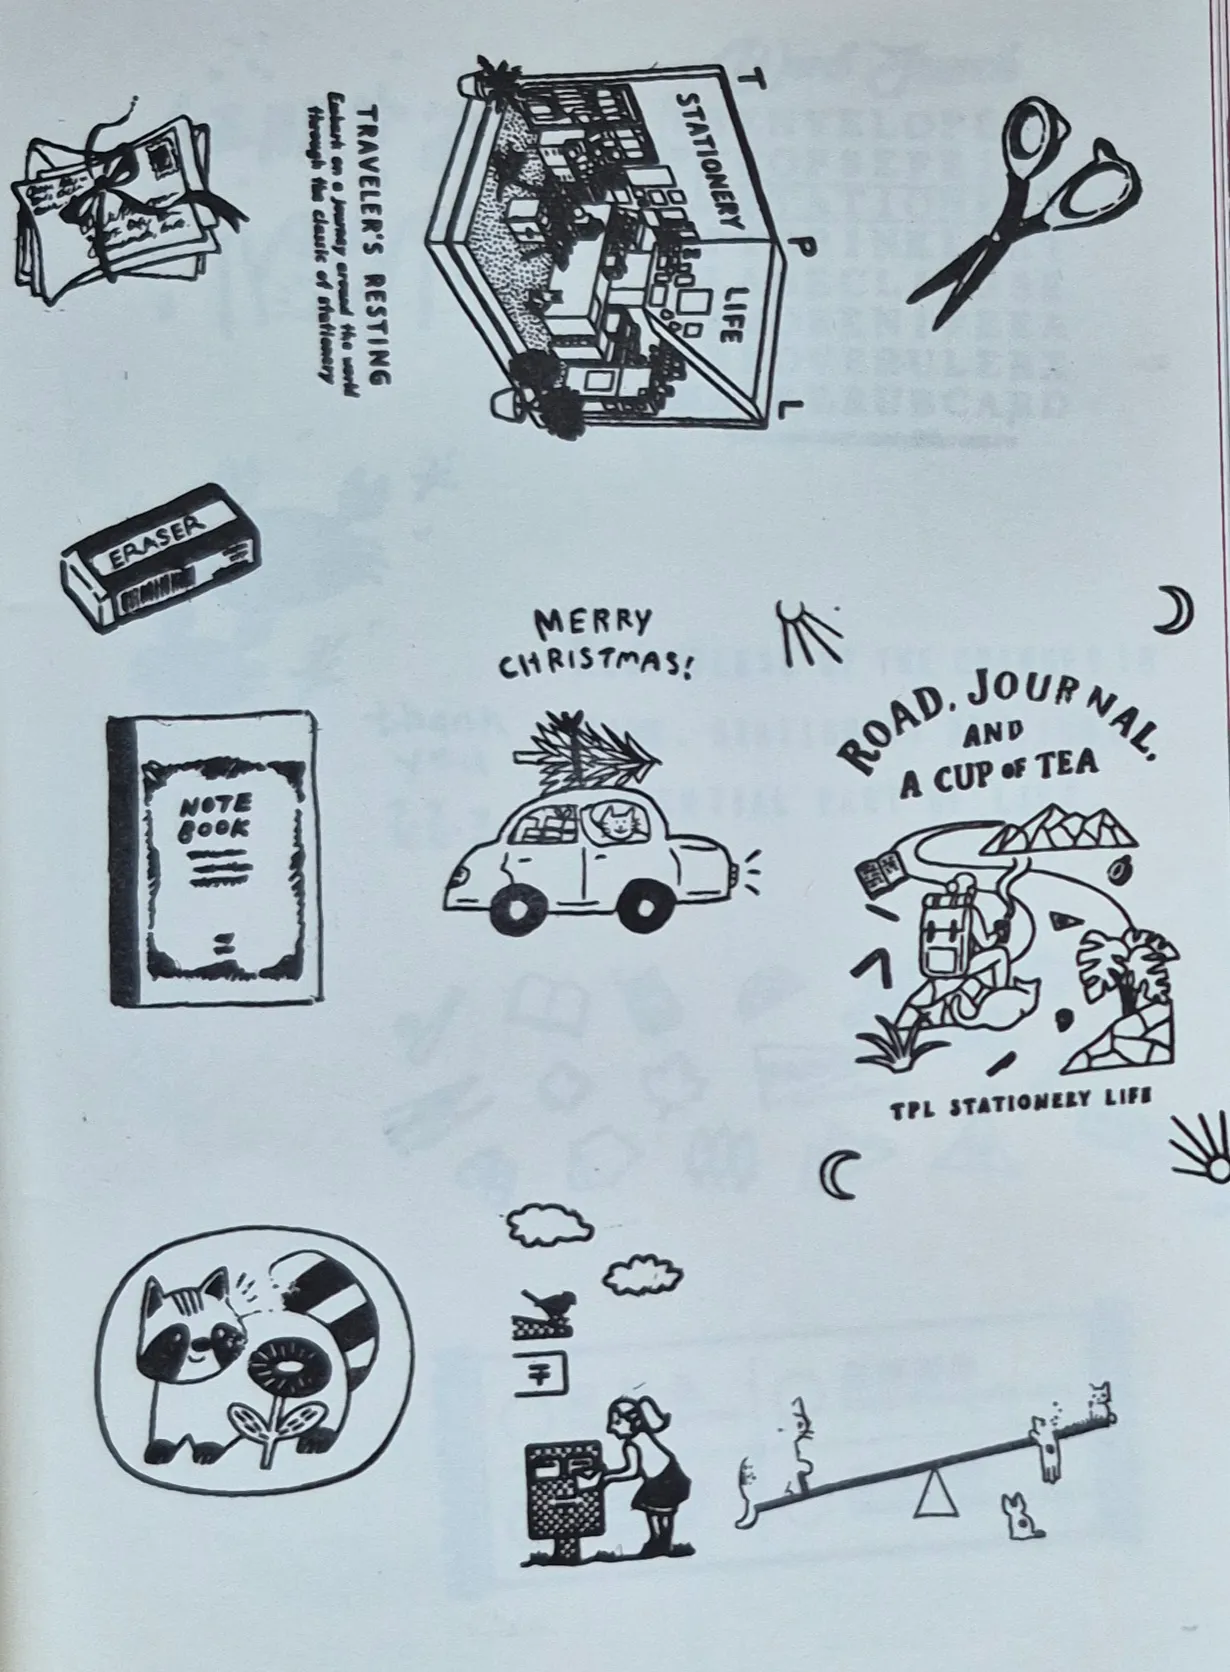 T P L
STATIONERY
LIFE
TRAVELER'S RESTING
Embark on a journey around the world
through the classic of stationery
ERASER
MERRY
CHRISTMAS!
NOTE
BOOK
ROAD, JOURNAL,
AND
A CUP OF TEA
TPL STATIONERY LIFE
〒